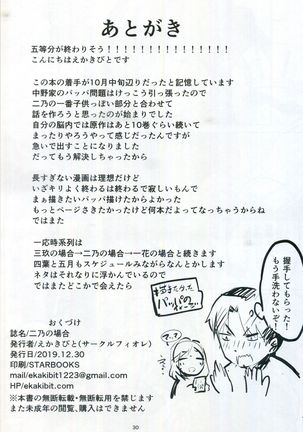 あとがき
五等分が終わりそう！！！！！！！！！！！！！！！
こんにちはえかきびとです
この本の着手が10月中旬辺りだったと記憶しています
中野家のパッパ問題はけっこう引っ張ったので
二乃の一番子供っぽい部分と合わせて
話を作ろうと思ったのが始まりでした
自分の脳内では原作はあと10巻ぐらい続いて
まったりやろうやって感じだったんですが
急いで出すことになりました
だってもう解決しちゃったから
長すぎない漫画は理想だけど
いざキリよく終わるは終わるで寂しいもんで
まぁ描きたいパッパ描けたからよかった
もっとページさきたかったけど何本だよってなっちゃうからね
ではまた
一応時系列は
三玖の場合→二乃の場合→一花の場合と続きます
四葉と五月もスケジュールみながらなんとかします
ネタはそれなりに浮かんでいるので
ではまたどこかで会えたら
握手してもらった！
もう手洗わないぞ！
おくづけ
誌名/二乃の場合
発行者/えかきびと(サークルフィオレ)
発行日/2019.12.30
印刷/STARBOOKS
mail/ekakibit1223@gmail.com
HP/ekakibit.com
※本書の無断転載・無断使用を禁じます
また未成年の閲覧、購入はできません
30